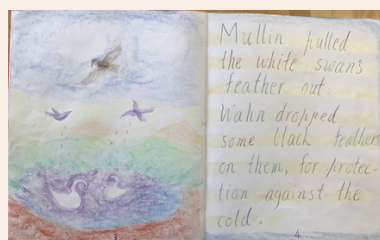 Mullin pulled
the white swans
feather out.
Wahn dropped
some black feathers
on them, for protec-
tion against the
cold.
3
4